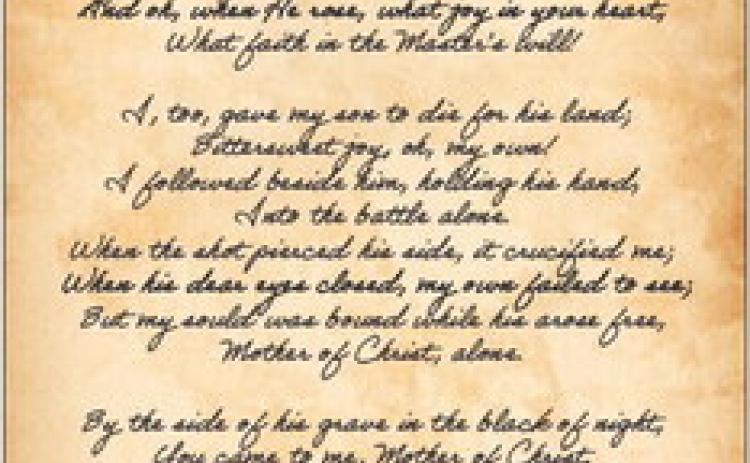 And oh, when He rose, what joy in your heart,
What faith in the Master's will!
I, too, gave my son to die for his land;
Bittersweet joy, oh, my own!
I followed beside him, holding his hand,
Into the battle alone.
When the shot pierced his side, it crucified me;
When his dear eyes closed, my own failed to see;
But my sould was bound while his arose free,
Mother of Christ, alone.
By the side of his grave in the black of night,
You came to me, Mother of Christ,